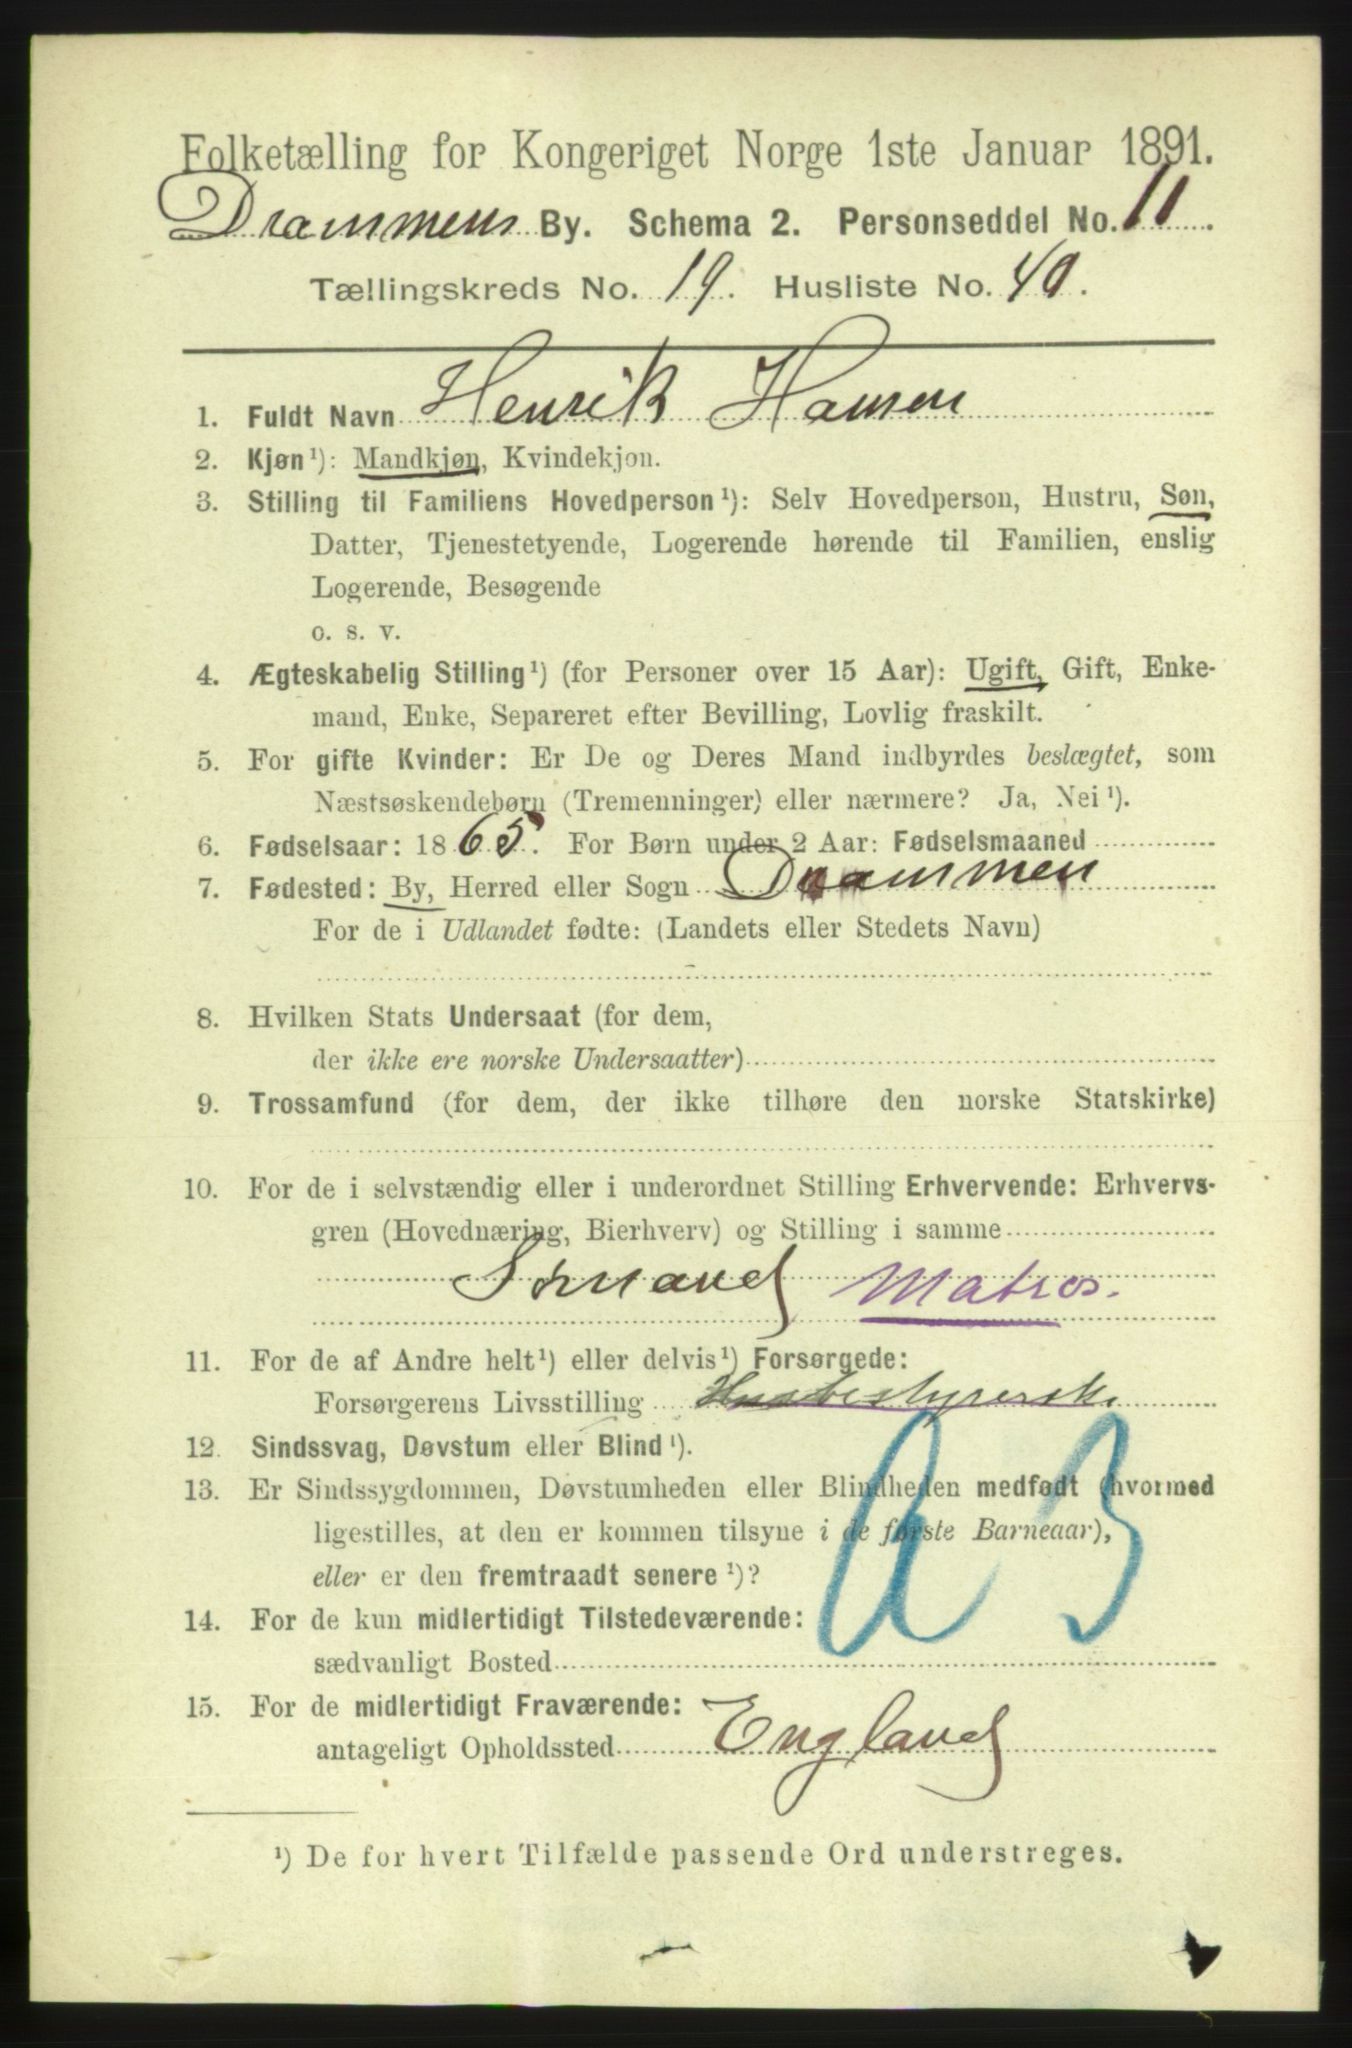 Folketælling for Kongeriget Norge 1ste Januar 1891.
Drammens By. Schema 2. Personseddel No. 11.
Tællingskreds No. 19. Husliste No. 40.
1. Fuldt Navn Henrik Hansen
2. Kjøn ¹): Mandkjøn, Kvindekjon.
3. Stilling til Familiens Hovedperson ¹): Selv Hovedperson, Hustru, Søn,
Datter, Tjenestetyende, Logerende hørende til Familien, enslig
Logerende, Besøgende
o. s. v.
4. Ægteskabelig Stilling ¹) (for Personer over 15 Aar): Ugift, Gift, Enke-
mand, Enke, Separeret efter Bevilling, Lovlig fraskilt.
5. For gifte Kvinder: Er De og Deres Mand indbyrdes beslægtet, som
Næstsøskendebørn (Tremenninger) eller nærmere? Ja, Nei ¹).
6. Fødselsaar: 1865. For Børn under 2 Aar: Fødselsmaaned
7. Fødested: By, Herred eller Sogn Drammen
For de i Udlandet fødte: (Landets eller Stedets Navn)
8. Hvilken Stats Undersaat (for dem,
der ikke ere norske Undersaatter)
9. Trossamfund (for dem, der ikke tilhøre den norske Statskirke)
10. For de i selvstændig eller i underordnet Stilling Erhvervende: Erhvervs-
gren (Hovednæring, Bierhverv) og Stilling i samme
Sømand Matros.
11. For de af Andre helt ¹) eller delvis ¹) Forsørgede:
Forsørgerens Livsstilling Husbestyrersk.
12. Sindssvag, Døvstum eller Blind ¹).
13. Er Sindssygdommen, Døvstumheden eller Blindheden medfødt (hvormed
ligestilles, at den er kommen tilsyne i de første Barneaar),
eller er den fremtraadt senere ¹)?
14. For de kun midlertidigt Tilstedeværende:
sædvanligt Bosted
15. For de midlertidigt Fraværende:
antageligt Opholdssted England
¹) De for hvert Tilfælde passende Ord understreges.